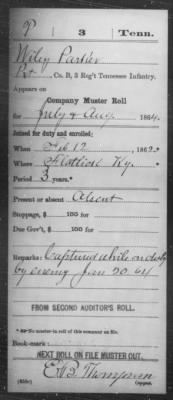 P | 3 | Tenn.
Wiley Parker
Pvt., Co. B, 3 Reg't Tennessee Infantry.
Appears on
Company Muster Roll
for July & Aug., 1864.
Joined for duty and enrolled:
When Feb 12, 1862.*
Where Ky.
Period 3 years.*
Present or absent Absent
Stoppage, $ 100 for
Due Gov't, $ 100 for
Remarks: Captured while on duty
by enemy Jan 20. 64
FROM SECOND AUDITOR'S ROLL.
* No muster-in roll of this company on file.
Book mark:
NEXT ROLL ON FILE MUSTER OUT.
E. B. Thompson
Copyist.